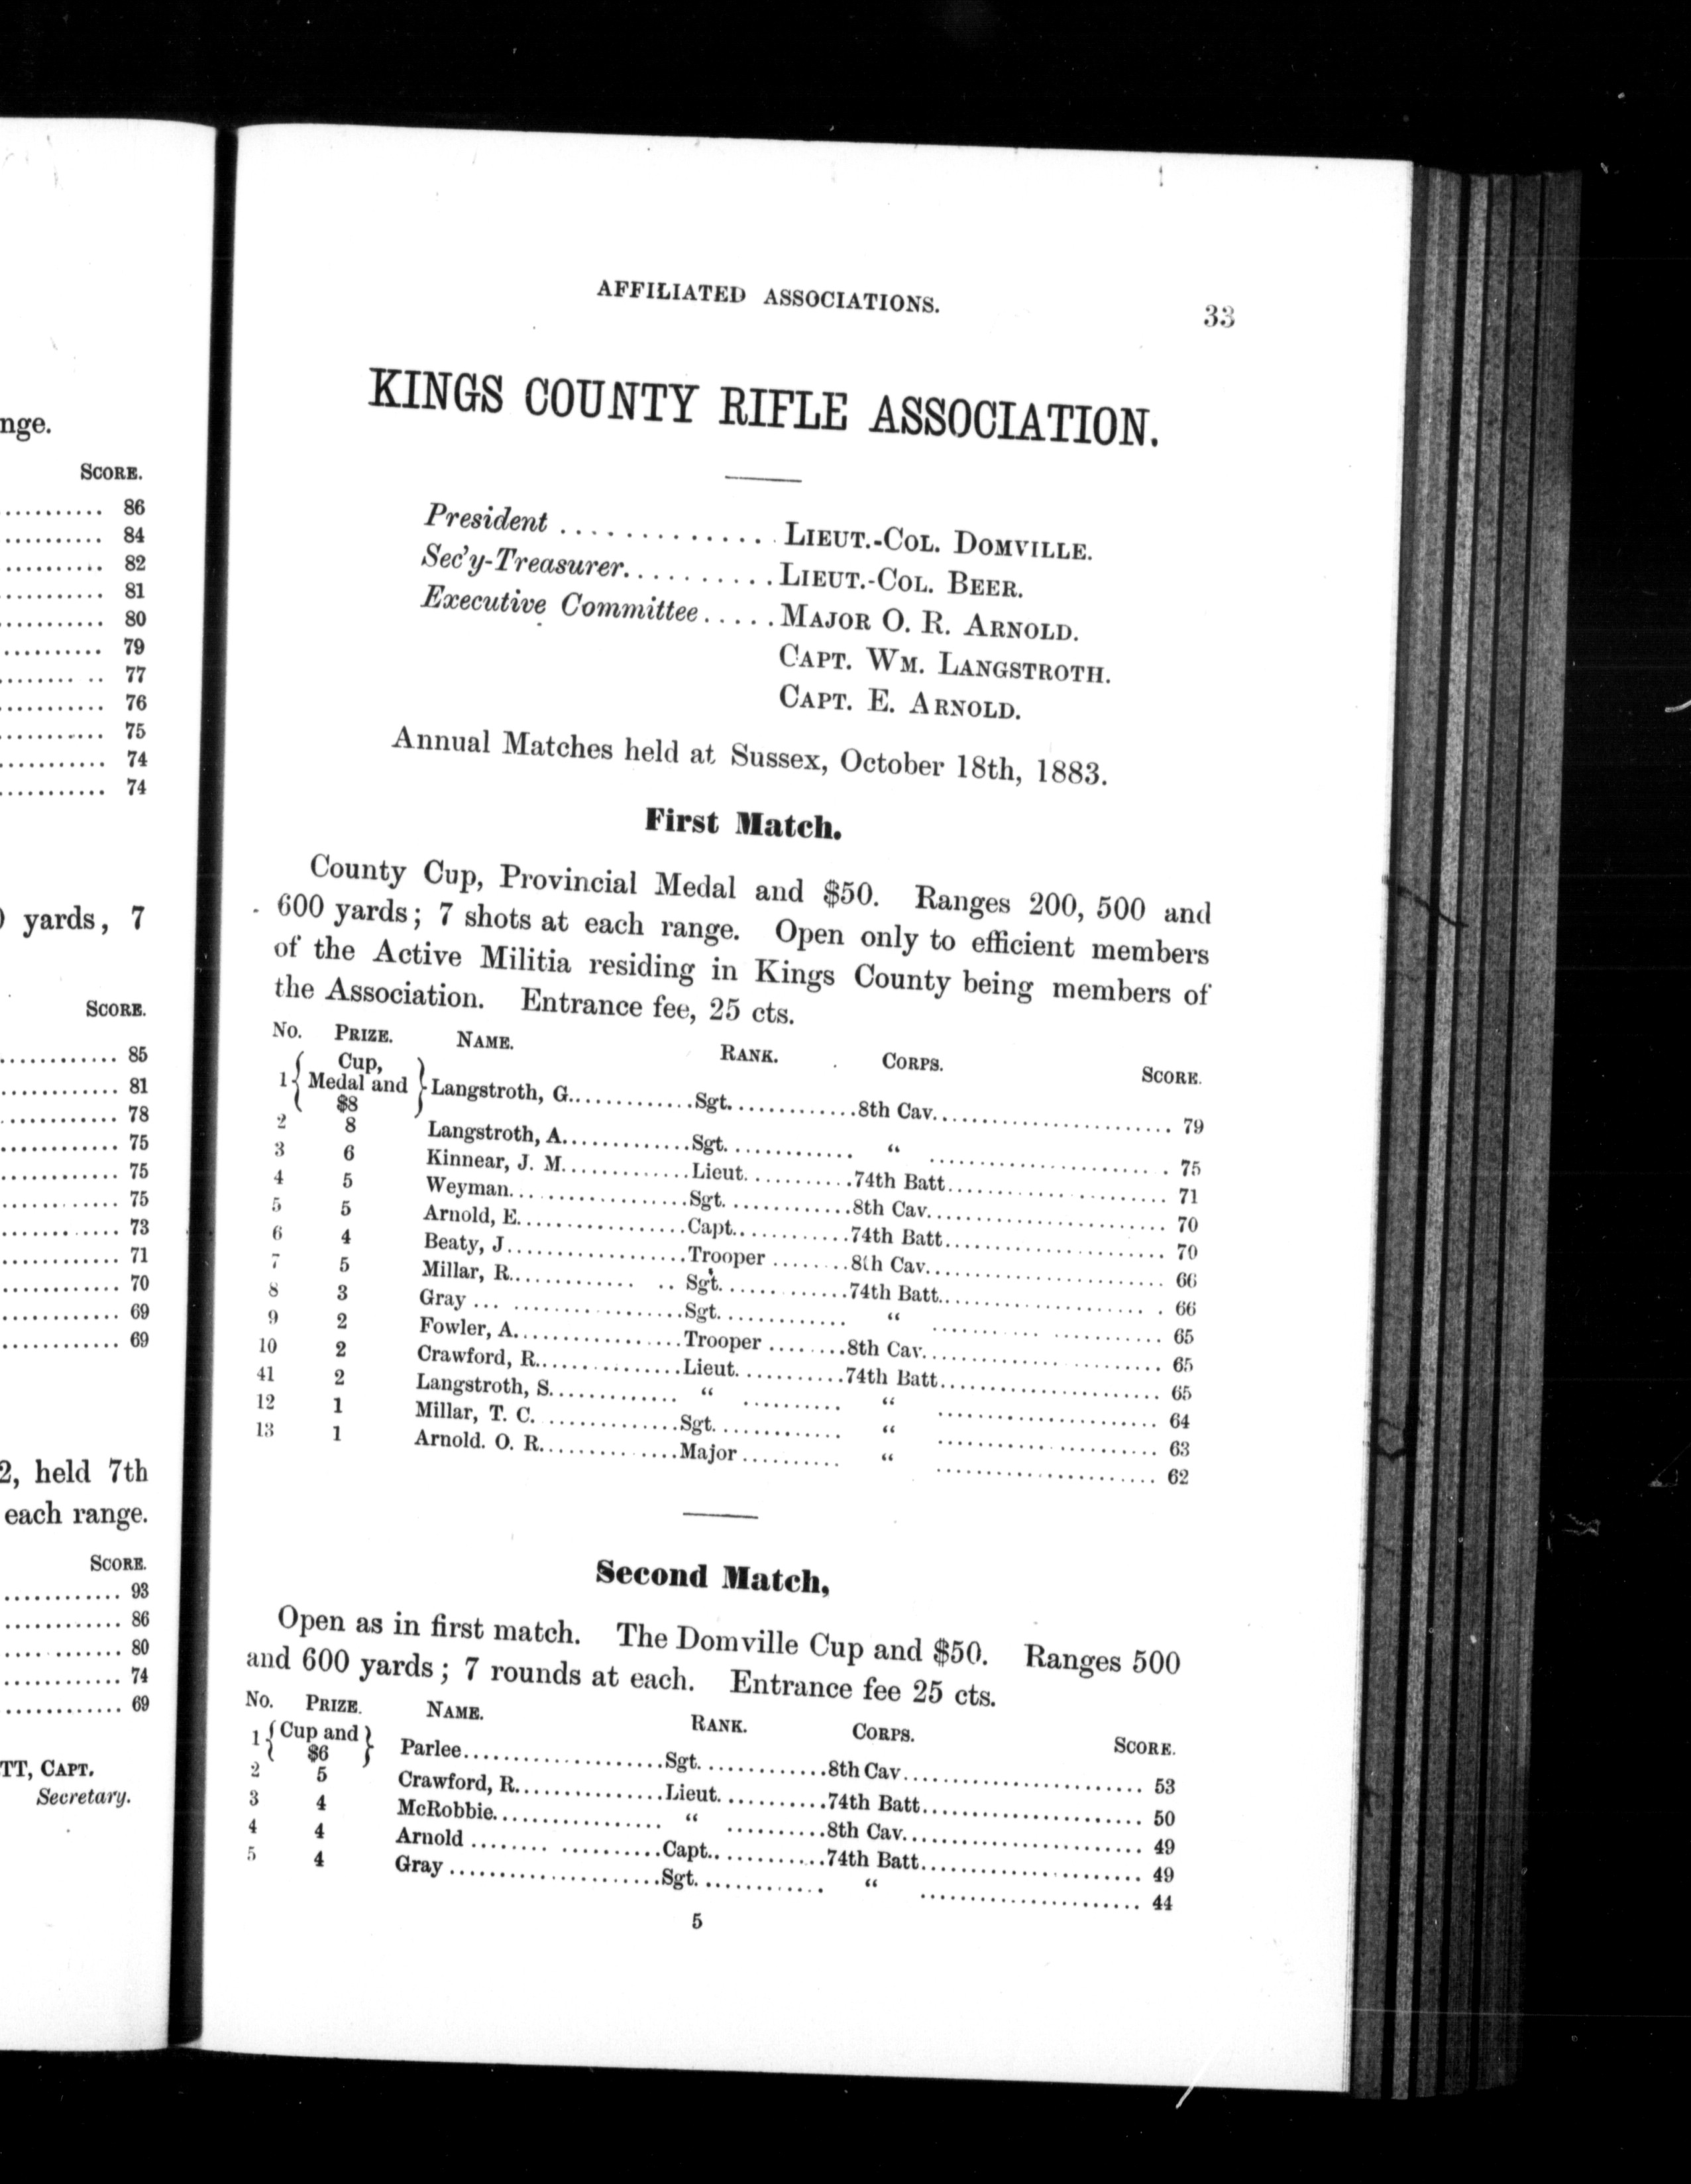 nge.
SCORE.
........... 86
.......... 84
.......... 82
........... 81
........... 80
.......... 79
........ .. 77
........... 76
........... 75
........... 74
........... 74
yards, 7
SCORE.
............ 85
............ 81
............ 78
............ 75
............ 75
............ 75
............ 73
............ 71
............ 70
............ 69
............ 69
2, held 7th
each range.
SCORE.
............ 93
............ 86
............ 80
............ 74
............ 69
TT, CAPT.
Secretary.
AFFILIATED ASSOCIATIONS.
33
KINGS COUNTY RIFLE ASSOCIATION.
President .............. LIEUT.-COL. DOMVILLE.
Sec'y-Treasurer.......... LIEUT.-COL. BEER.
Executive Committee..... MAJOR O. R. ARNOLD.
CAPT. WM. LANGSTROTH.
CAPT. E. ARNOLD.
Annual Matches held at Sussex, October 18th, 1883.
First Match.
County Cup, Provincial Medal and $50. Ranges 200, 500 and
600 yards; 7 shots at each range. Open only to efficient members
of the Active Militia residing in Kings County being members of
the Association. Entrance fee, 25 cts.
No. PRIZE. NAME. RANK. CORPS. SCORE.
1 { Cup, Medal and $8 } Langstroth, G.............Sgt.............8th Cav........................ 79
2 8 Langstroth, A.............Sgt............. “ ........................ 75
3 6 Kinnear, J. M.............Lieut...........74th Batt........................ 71
4 5 Weyman...................Sgt.............8th Cav........................ 70
5 5 Arnold, E.................Capt............74th Batt........................ 70
6 4 Beaty, J..................Trooper ........8th Cav........................ 66
7 5 Millar, R............. .. Sgt.............74th Batt........................ 66
8 3 Gray ... .................Sgt............. “ ........................ 65
9 2 Fowler, A.................Trooper ........8th Cav........................ 65
10 2 Crawford, R...............Lieut...........74th Batt........................ 65
41 2 Langstroth, S............. “ .......... “ ........................ 64
12 1 Millar, T. C. ..............Sgt............. “ ........................ 63
13 1 Arnold. O. R..............Major.......... “ ........................ 62
Second Match,
Open as in first match. The Domville Cup and $50. Ranges 500
and 600 yards; 7 rounds at each. Entrance fee 25 cts.
No. PRIZE. NAME. RANK. CORPS. SCORE.
1 { Cup and $6 } Parlee....................Sgt.............8th Cav........................ 53
2 5 Crawford, R...............Lieut...........74th Batt........................ 50
3 4 McRobbie................. “ ..........8th Cav........................ 49
4 4 Arnold ........ ..........Capt............74th Batt........................ 49
5 4 Gray .....................Sgt............. “ ........................ 44
5